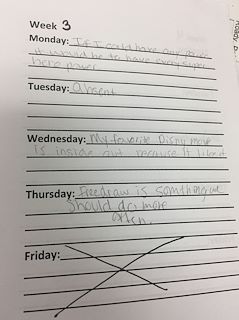 Week 3
Monday: If I could have any power
it would be to have every super
hero power
Tuesday: absent
Wednesday: My favorite Disny move
is inside out because it like it
Thursday: freedraw is somthing we
Should do more
often.
Friday: